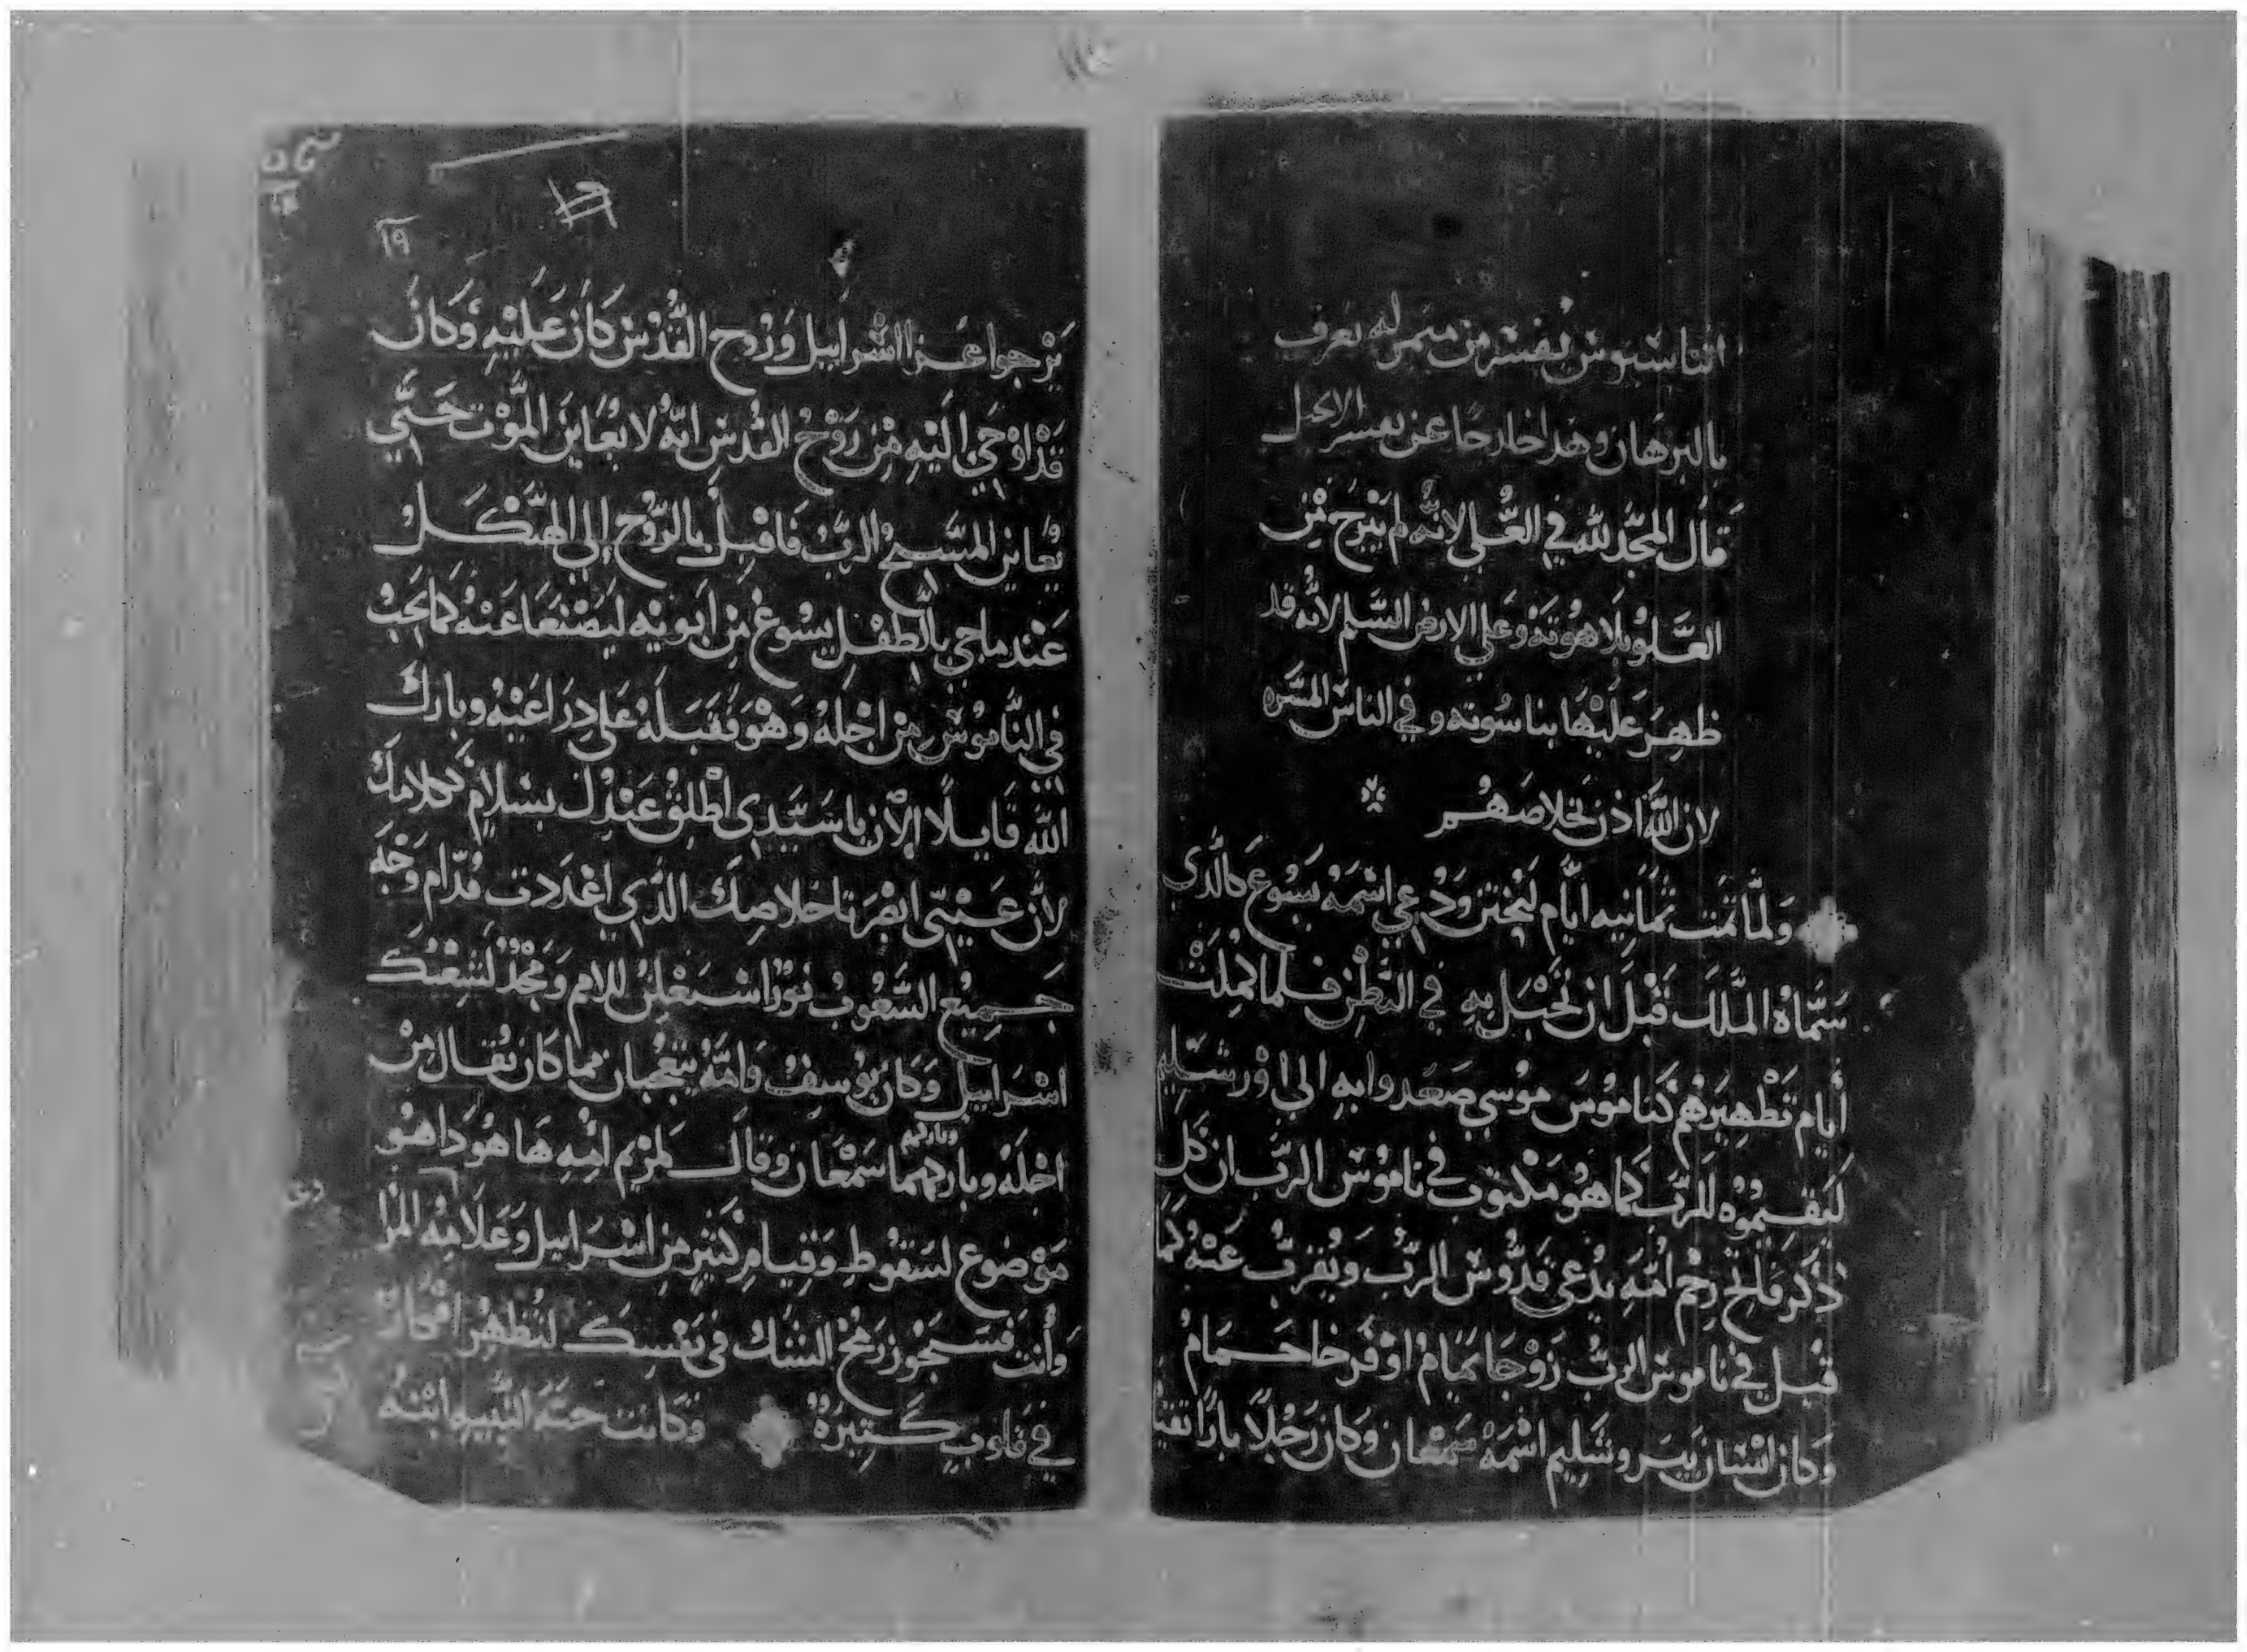 اثناسيوس يفسر من ميمر له يعرف
بالبرهان وهذا خارجا عن تفسير
قال المجد لله في العلي لانه لم يبرح من
العلو بلاهوته وعلي الارض السلم لانه قد
ظهر عليها بناسوته وفي الناس المسره
لان الله اذن بخلاصهم
وَلمَّا تمت ثمانيه ايَّام ليختتن ودُعي اسْمَهُ يسُوع كالَّذي
سَمَّاهُ الملَاك قَبْلَ ان تُحْبَل بِهِ في البَطْنِ فلما كمِلَتْ
أيام تَطْهِيرَهُم كنامُوسَ موُسي صَعَدوا بهِ الي اوْرشَليم
لَيَقيمُوُه للرَّبِ كما هُو مَكْتوب في نامُوسَ الربَّ ان كل
ذَكر فاتح رحْم اُمّهِ يدُعي قدُّوسَ الربُّ ويُقرب عَنْهُ كما
قيل في ناموس الربّ زَوْجَا يَمَام اوْ فَرخا حَمَامُ
وَكان انسَان بيَروشَليم اسْمَهُ سَمْعَان وَكان رَجُلًا بارًا تقيا
١٩
يَرْجوا عَزا اسْرابيل وَرُوح القُدُسْ كانَ عَليْهِ وَكانَ
قدْ اوْحي اليْهِ مْن رُوْحُ القُدسِ انهُ لا يُعَاين المَوْت حَتَّي
يُعَاين المسَّيحُ الربُّ فَاقبلَ بالرُّوح إلي الهيْكلُ
عَنْدما جي بالطفلِ يسُوع مِن ابَويْهِ ليصْنَعَا عَنْهُ كما يَجبُ
في النَّامُوسِ مْن اجْلهُ وَهْوَ فقَبلَهُ عَلي ذِرَاعَيْهُ وبارك
الله قَايلًا الآن ياسَيّدِي اُطْلقُ عَبْدك بسَلامٍ ككلامك
لأن عَيْنَّي ابْصَرتا خلاصِك الذّي اعْدَدت قدّام وَجْه
جَميْع الشعُوبُ نوُرًا اسْتعْلِنُ للامم وَمَجْدُ لشعْبك
اسْرَابيل وَكان يوُسفُ وَامّهُ يتعَجْبان مما كان يُقال مِنْ
اجْلهُ وباركهما سَمْعَان وقال لمريم امّهِ هَا هُودَا هُو
وباركهم
مَوْضوع لسَقُوطِ وَقيامِ كثير مِنْ اسْرَابيل وَعَلامهُ المرا
وَأنت فسَيَجُوز رُمحْ الشك في نفسك لتظهرُ افكار
في قلوبٍ كثيرَةُ وَكانت حنَّه النّبيه ابنهُ